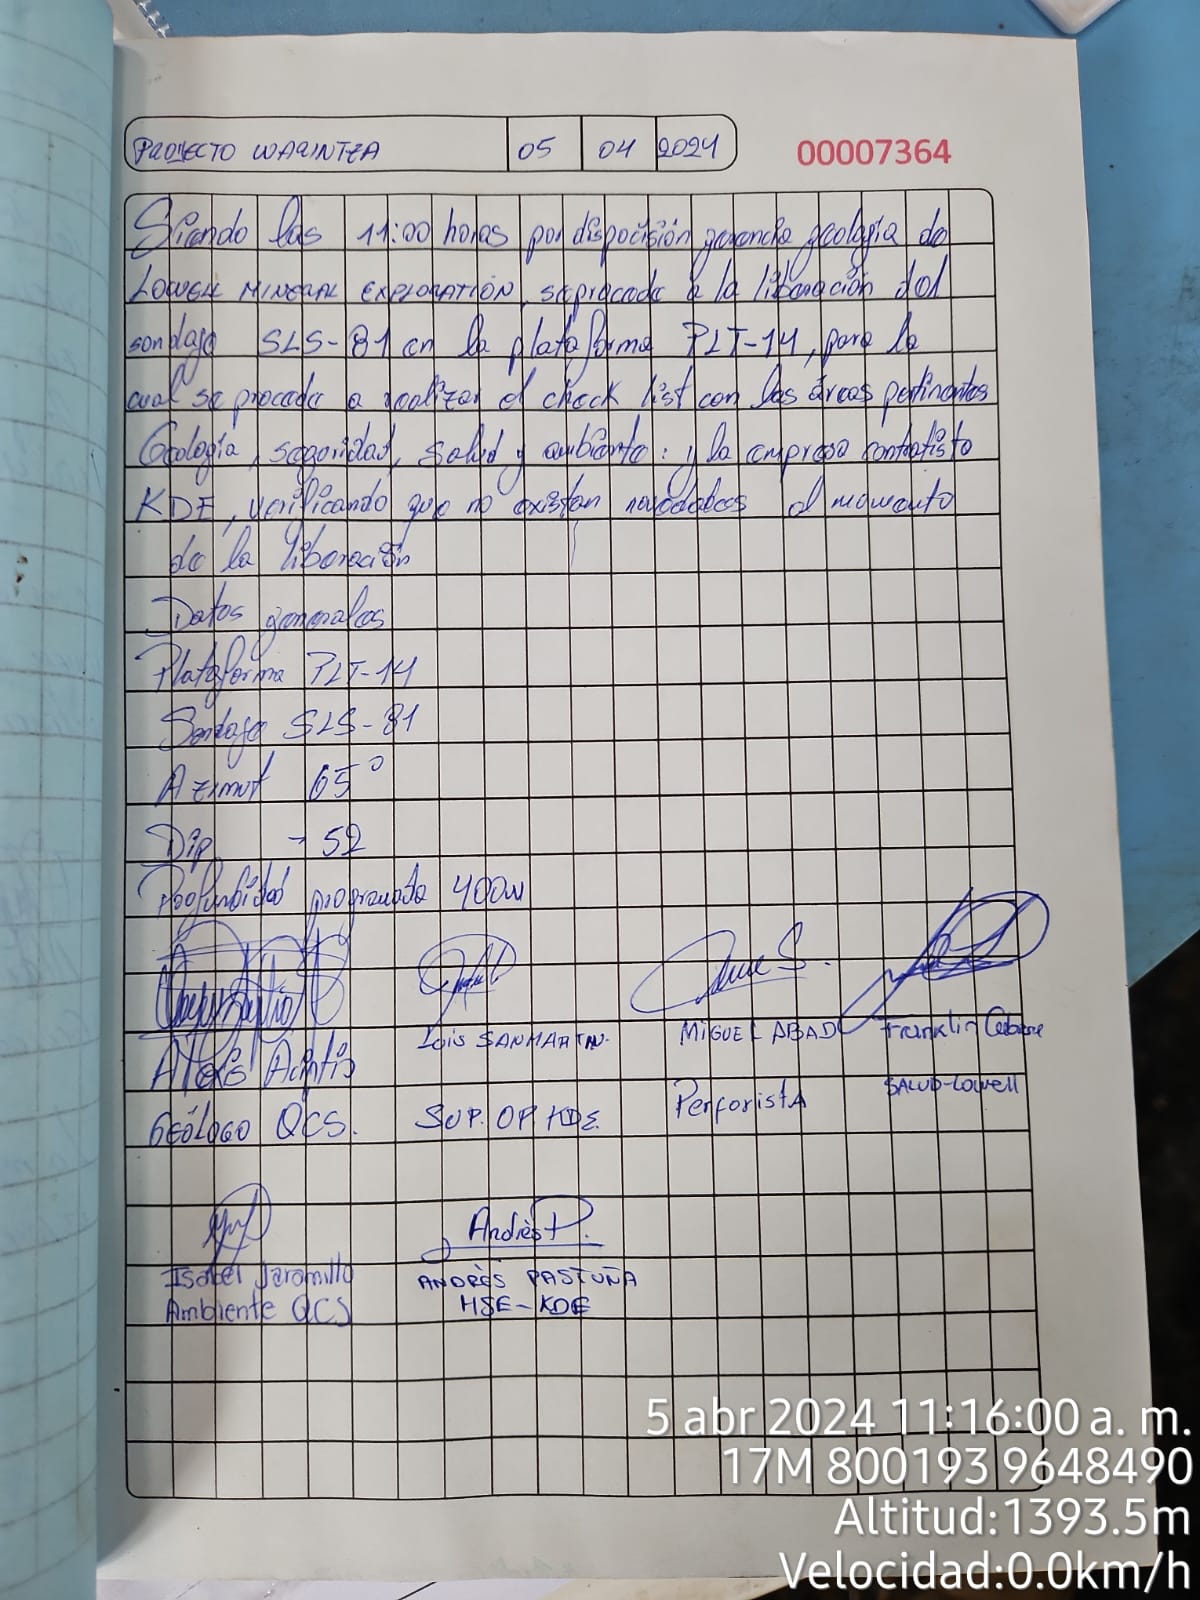 PROYECTO WARINTZA 05 04 2024 00007364
Siendo las 11:00 horas por dispocisión gerencia geología de
LOWELL MINERAL EXPLORATION, se procede a la liberación del
sondaje SLS-81 en la plataforma PLT-14, para la
cual se procede a realizar el check list con las áreas pertinentes
Geología, seguridad, salud y ambiente: y la empresa contratista
KDE, verificando que no existan novedades al momento
de la liberación
Datos generales
Plataforma PLT-14
Sondaje SLS-81
Azimut 65°
Dip -52
Profundidad programada 400m
Luis SANMARTIN. MIGUEL ABAD Franklin
Alexis
GEÓLOGO QCS. SUP. OP. KDE PerforistA SALUD-Lowell
Andrés P.
Isabel Jaramillo ANDRÉS PASTUÑA
Ambiente QCS HSE-KDE
5 abr 2024 11:16:00 a. m.
17M 800193 9648490
Altitud:1393.5m
Velocidad:0.0km/h